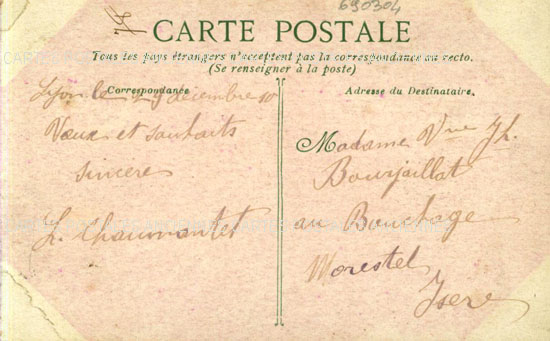 690304
CARTE POSTALE
Tous les pays étrangers n'acceptent pas la correspondance au recto.
(Se renseigner à la poste)
Correspondance
Lyon le 29 décembre 10
Vœux et souhaits
sincères
L. Chaumontet
Adresse du Destinataire.
Madame Vve Jh.
Bourjaillat
au Bouchage
Morestel
Isère